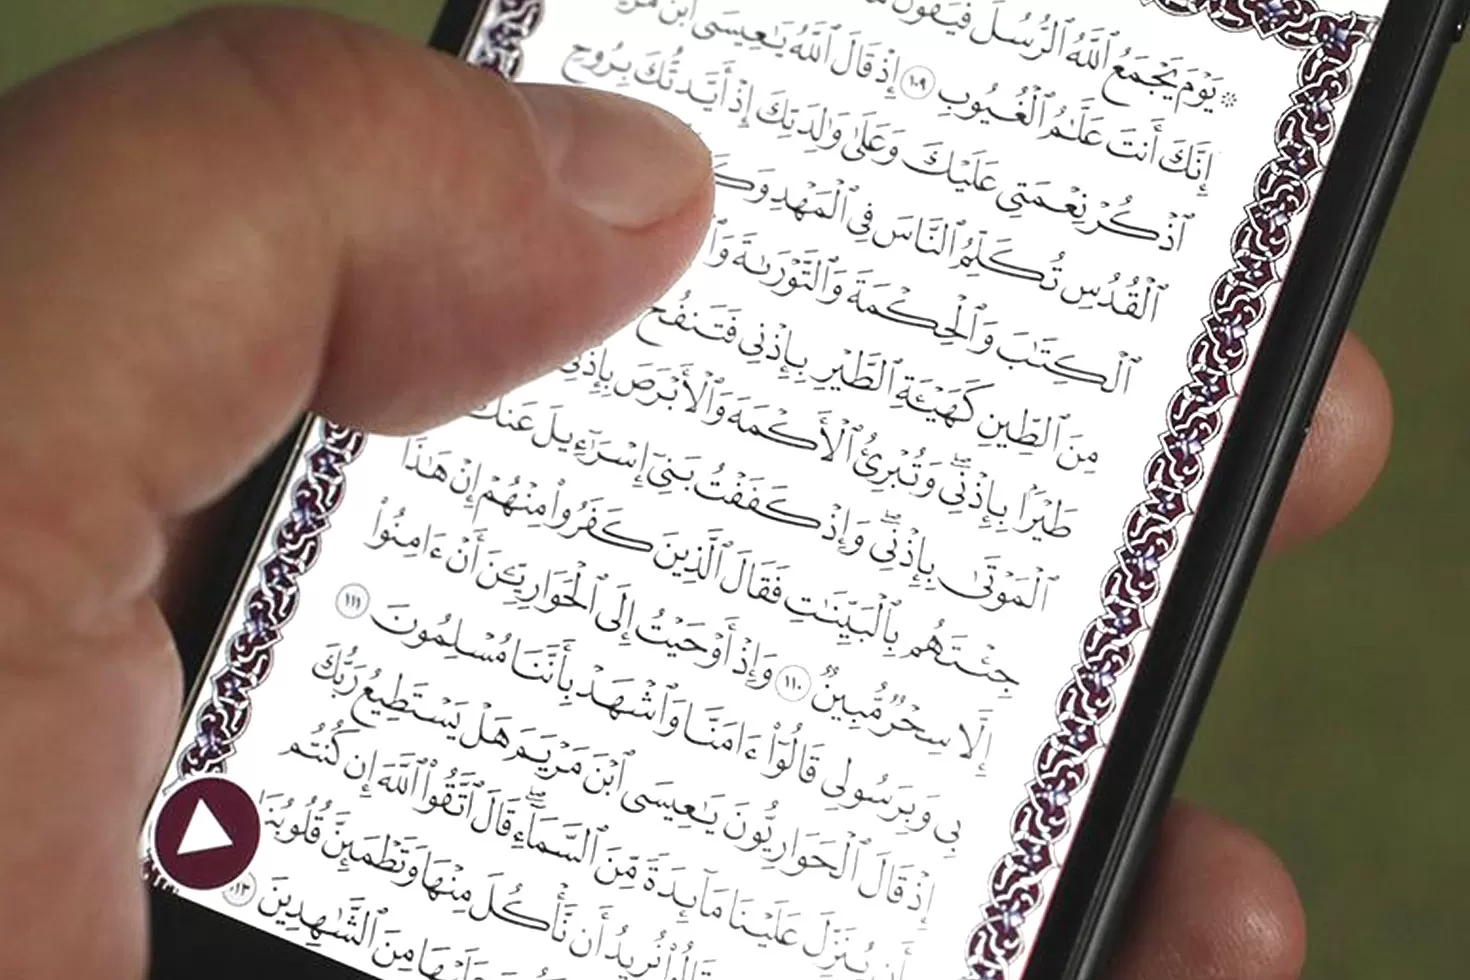 ۞ يَوْمَ يَجْمَعُ ٱللَّهُ ٱلرُّسُلَ فَيَقُولُ
إِنَّكَ أَنتَ عَلَّٰمُ ٱلْغُيُوبِ ١٠٩ إِذْ قَالَ ٱللَّهُ يَٰعِيسَى ٱبْنَ
ٱذْكُرْ نِعْمَتِى عَلَيْكَ وَعَلَىٰ وَٰلِدَتِكَ إِذْ أَيَّدتُّكَ بِرُوحِ
ٱلْقُدُسِ تُكَلِّمُ ٱلنَّاسَ فِى ٱلْمَهْدِ
ٱلْكِتَٰبَ وَٱلْحِكْمَةَ وَٱلتَّوْرَىٰةَ
مِنَ ٱلطِّينِ كَهَيْـَٔةِ ٱلطَّيْرِ بِإِذْنِى فَتَنفُخُ
طَيْرًۢا بِإِذْنِى ۖ وَتُبْرِئُ ٱلْأَكْمَهَ وَٱلْأَبْرَصَ بِإِذْنِى
ٱلْمَوْتَىٰ بِإِذْنِى ۖ وَإِذْ كَفَفْتُ بَنِىٓ إِسْرَٰٓءِيلَ عَنكَ
جِئْتَهُم بِٱلْبَيِّنَٰتِ فَقَالَ ٱلَّذِينَ كَفَرُوا۟ مِنْهُمْ إِنْ هَٰذَآ
إِلَّا سِحْرٌ مُّبِينٌ ١١٠ وَإِذْ أَوْحَيْتُ إِلَى ٱلْحَوَارِيِّـۧنَ أَنْ ءَامِنُوا۟
بِى وَبِرَسُولِى قَالُوٓا۟ ءَامَنَّا وَٱشْهَدْ بِأَنَّنَا مُسْلِمُونَ ١١١
إِذْ قَالَ ٱلْحَوَارِيُّونَ يَٰعِيسَى ٱبْنَ مَرْيَمَ هَلْ يَسْتَطِيعُ رَبُّكَ
أَن يُنَزِّلَ عَلَيْنَا مَآئِدَةً مِّنَ ٱلسَّمَآءِ ۖ قَالَ ٱتَّقُوا۟ ٱللَّهَ إِن كُنتُم
قَالُوا۟ نُرِيدُ أَن نَّأْكُلَ مِنْهَا وَتَطْمَئِنَّ قُلُوبُنَا
عَلَيْهَا مِنَ ٱلشَّٰهِدِينَ ١١٣